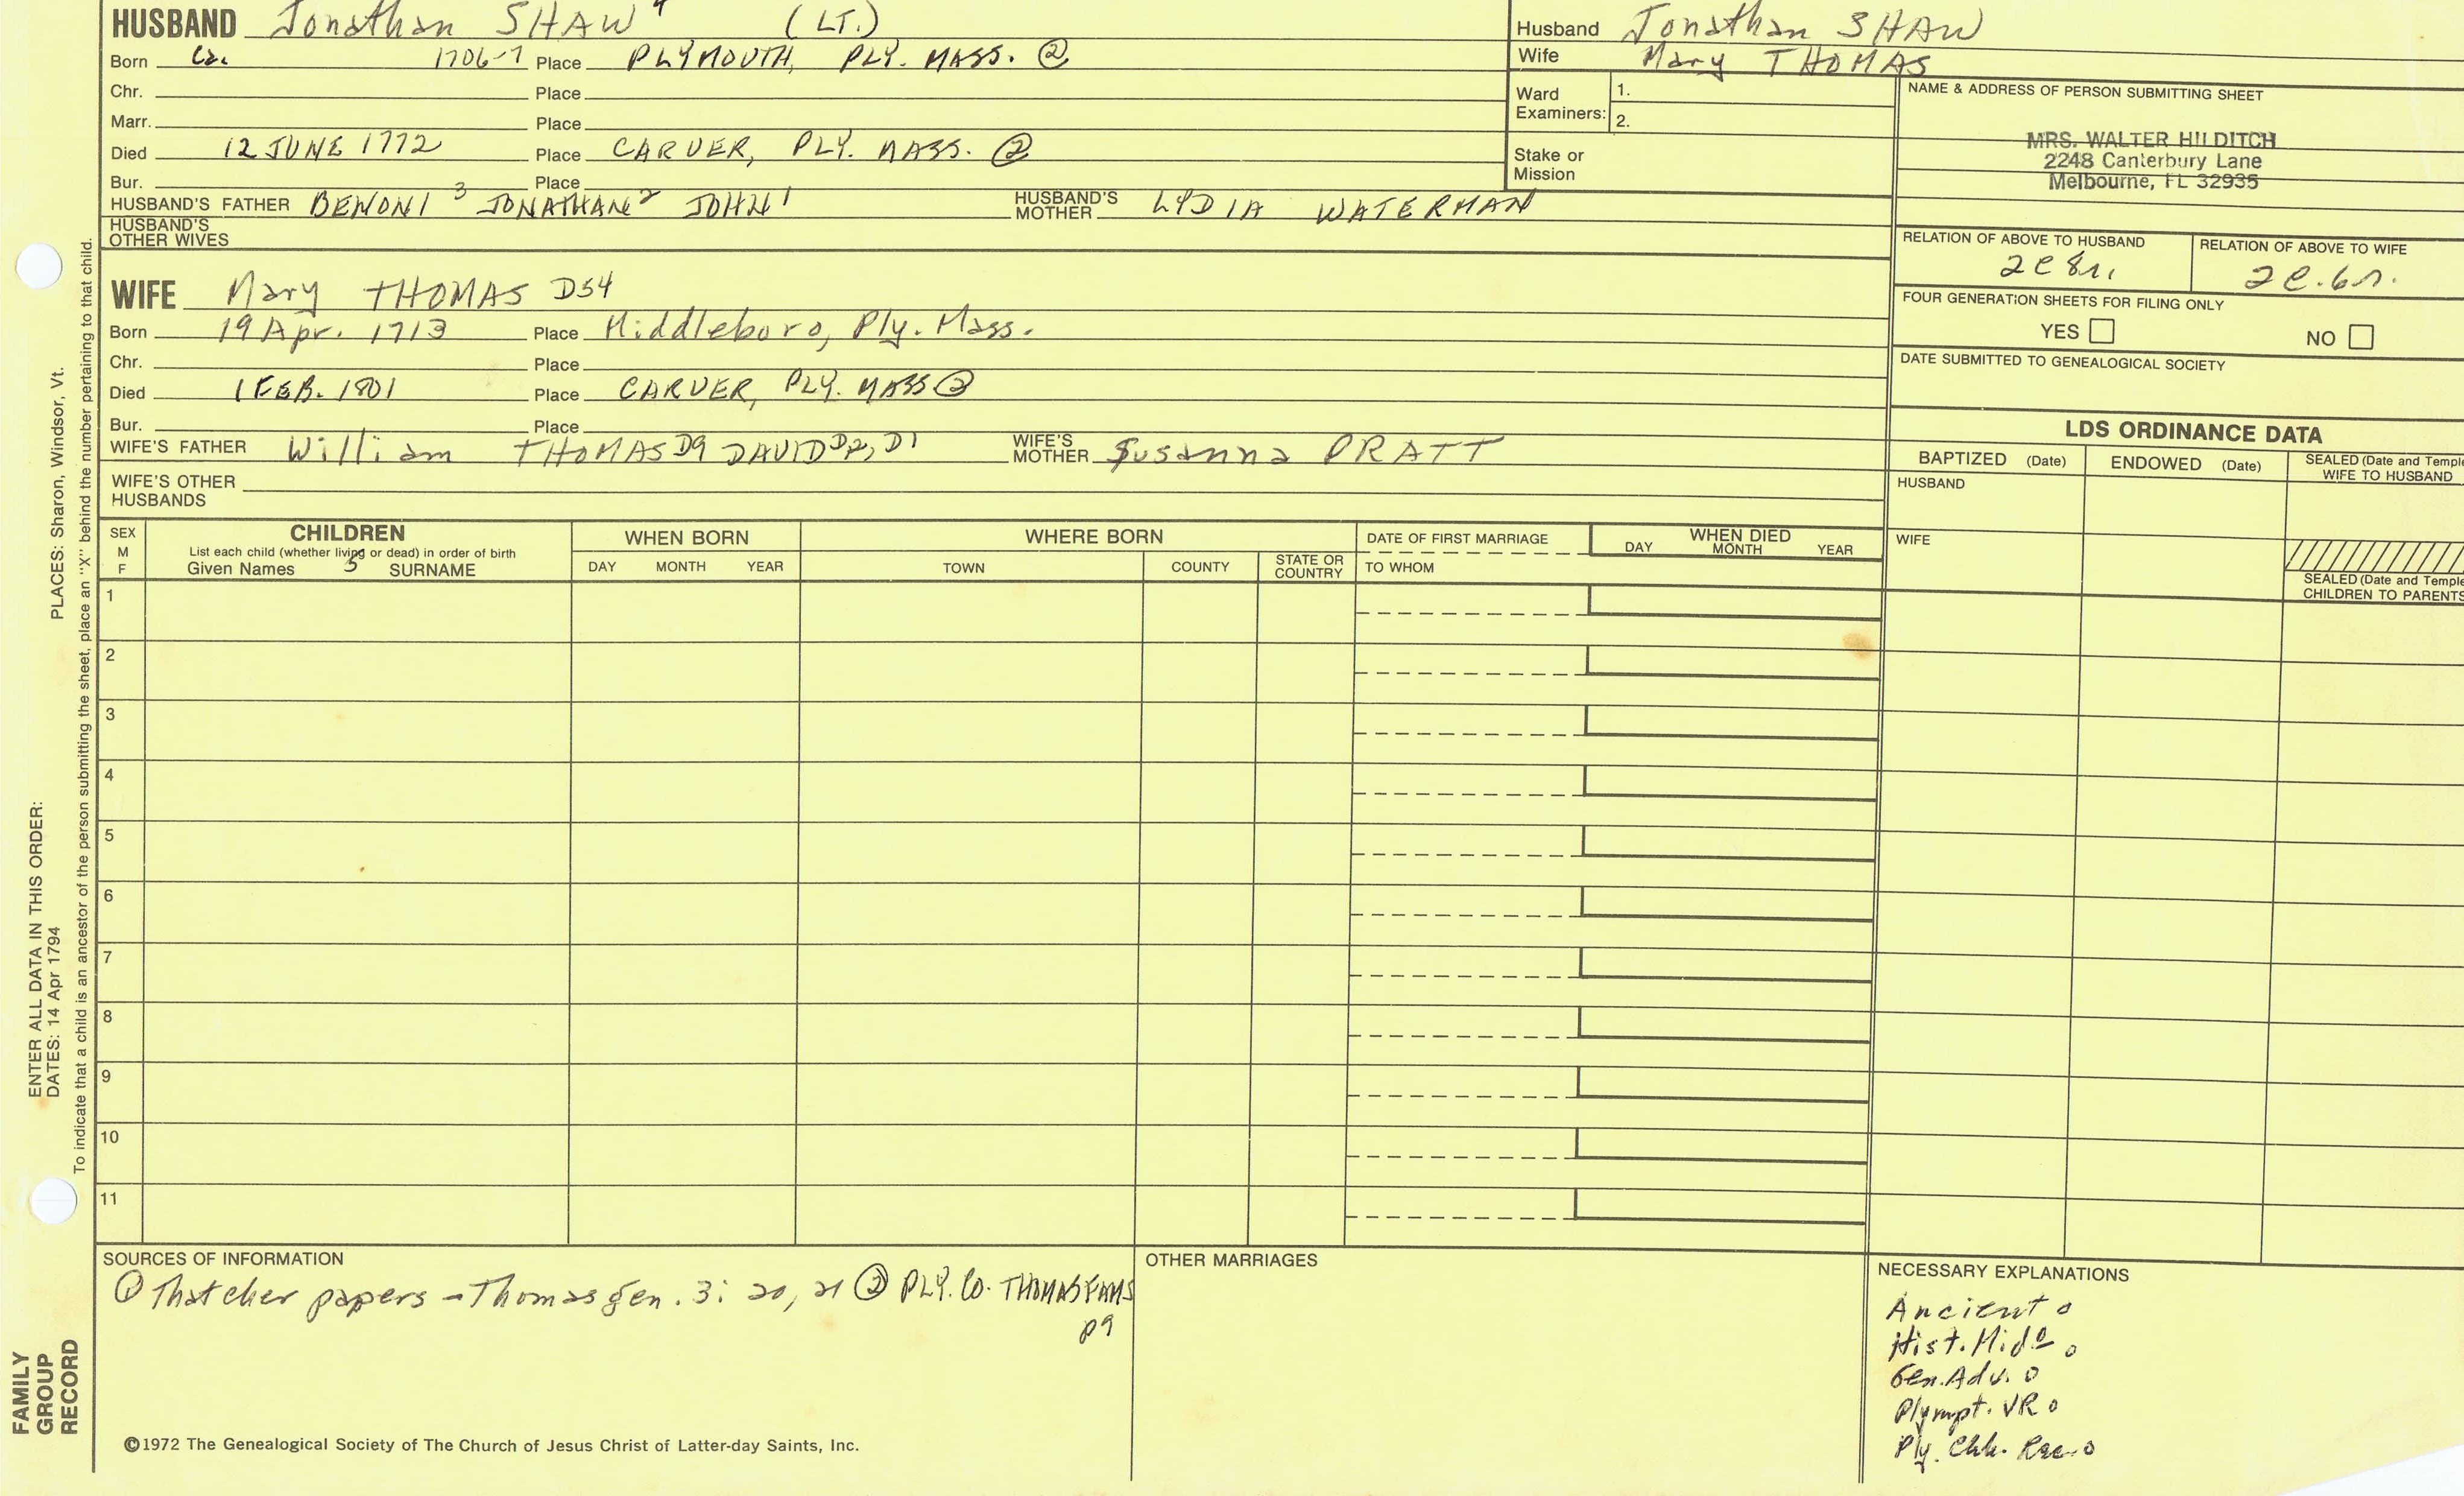 HUSBAND Jonathan SHAW 4 (LT.)
Born Ca. 1706-7 Place PLYMOUTH, PLY. MASS. ②
Chr. Place
Marr. Place
Died 12 JUNE 1772 Place CARVER, PLY. MASS. ②
Bur. Place
HUSBAND'S FATHER BENONI 3 JONATHAN 2 JOHN 1 HUSBAND'S MOTHER LYDIA WATERMAN
HUSBAND'S OTHER WIVES
Husband Jonathan SHAW
Wife Mary THOMAS
Ward Examiners: 1.
2.
Stake or Mission
NAME & ADDRESS OF PERSON SUBMITTING SHEET
MRS. WALTER HILDITCH
2248 Canterbury Lane
Melbourne, FL 32935
RELATION OF ABOVE TO HUSBAND
2c 8r.
RELATION OF ABOVE TO WIFE
2c. 6r.
FOUR GENERATION SHEETS FOR FILING ONLY
YES NO
DATE SUBMITTED TO GENEALOGICAL SOCIETY
WIFE Mary THOMAS D54
Born 19 Apr. 1713 Place Middleboro, Ply. Mass.
Chr. Place
Died 1 FEB. 1801 Place CARVER, PLY. MASS ②
Bur. Place
WIFE'S FATHER William THOMAS D9 DAVID D2, D1 WIFE'S MOTHER Susanna PRATT
WIFE'S OTHER HUSBANDS
LDS ORDINANCE DATA
BAPTIZED (Date) ENDOWED (Date) SEALED (Date and Temple
WIFE TO HUSBAND
HUSBAND
WIFE
SEALED (Date and Temple
CHILDREN TO PARENTS
SEX
M
F
CHILDREN
List each child (whether living or dead) in order of birth
Given Names 5 SURNAME
WHEN BORN
DAY MONTH YEAR
WHERE BORN
TOWN COUNTY STATE OR COUNTRY
DATE OF FIRST MARRIAGE
TO WHOM
WHEN DIED
DAY MONTH YEAR
1
2
3
4
5
6
7
8
9
10
11
SOURCES OF INFORMATION
① Thatcher papers - Thomas gen. 3: 20, 21 ② PLY. CO. THOMAS FAMS
p9
OTHER MARRIAGES
NECESSARY EXPLANATIONS
Ancient o
Hist. Mid o
Gen. Adv. o
Plympt. VR o
Ply. Chh. Rec. o
©1972 The Genealogical Society of The Church of Jesus Christ of Latter-day Saints, Inc.
PLACES: Sharon, Windsor, Vt.
ENTER ALL DATA IN THIS ORDER:
DATES: 14 Apr 1794
To indicate that a child is an ancestor of the person submitting the sheet, place an "X" behind the number pertaining to that child.
FAMILY
GROUP
RECORD